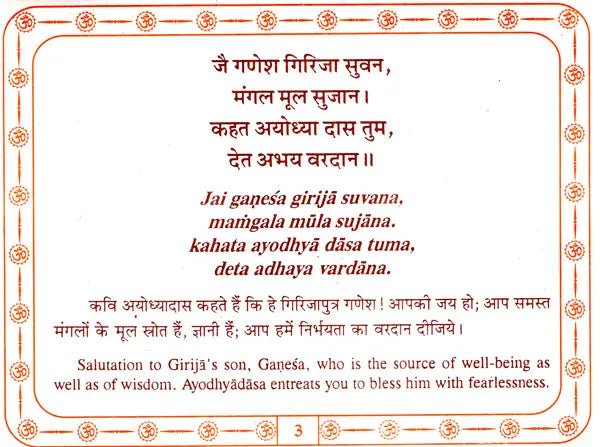 जै गणेश गिरिजा सुवन,
मंगल मूल सुजान।
कहत अयोध्या दास तुम,
देत अभय वरदान॥
Jai gaṇeśa girijā suvana,
maṁgala mūla sujāna.
kahata ayodhyā dāsa tuma,
deta adhaya vardāna.
कवि अयोध्यादास कहते हैं कि हे गिरिजापुत्र गणेश! आपकी जय हो; आप समस्त
मंगलों के मूल स्रोत हैं, ज्ञानी हैं; आप हमें निर्भयता का वरदान दीजिये।
Salutation to Girijā's son, Gaṇeśa, who is the source of well-being as
well as of wisdom. Ayodhyādāsa entreats you to bless him with fearlessness.
3